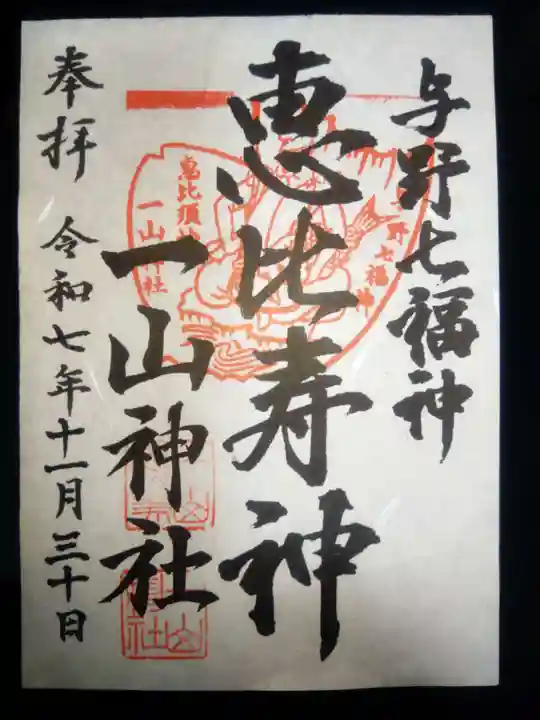 与野七福神
恵比寿神
一山神社
奉拝 令和七年十一月三十日
与野七福神
恵比須神
一山神社